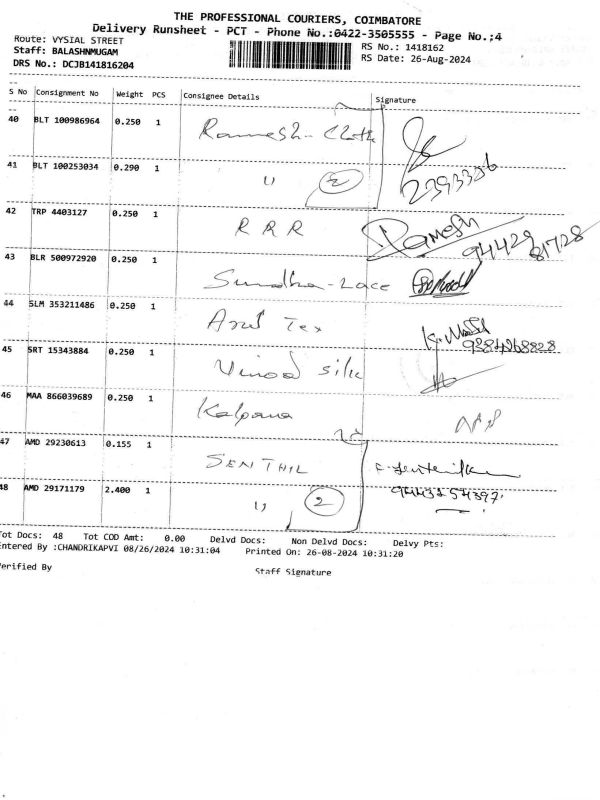 THE PROFESSIONAL COURIERS, COIMBATORE
Delivery Runsheet - PCT - Phone No.:0422-3505555 - Page No.;4
Route: VYSIAL STREET
RS No.: 1418162
Staff: BALASHNMUGAM
RS Date: 26-Aug-2024
DRS No.: DCJB141816204
S No Consignment No Weight PCS Consignee Details Signature
40 BLT 100986964 0.250 1 Ramesh Cloth
41 BLT 100253034 0.290 1 11 2 2393326
42 TRP 4403127 0.250 1 R R R Ramesh 94429 81728
43 BLR 500972920 0.250 1 Sundha-Lace
44 SLM 353211486 0.250 1 Arul Tex 9384268828
45 SRT 15343884 0.250 1 Vinod silk
46 MAA 866039689 0.250 1 Kalpana
47 AMD 29230613 0.155 1 SENTHIL
48 AMD 29171179 2.400 1 11 2 9443254397
Tot Docs: 48 Tot COD Amt: 0.00 Delvd Docs: Non Delvd Docs: Delvy Pts:
Entered By :CHANDRIKAPVI 08/26/2024 10:31:04 Printed On: 26-08-2024 10:31:20
Verified By
Staff Signature